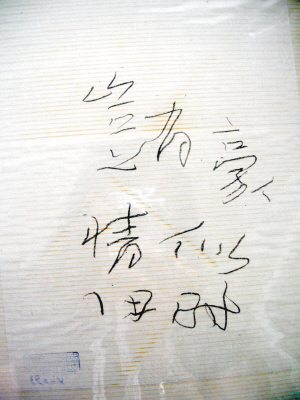 豈有豪
情似
旧时